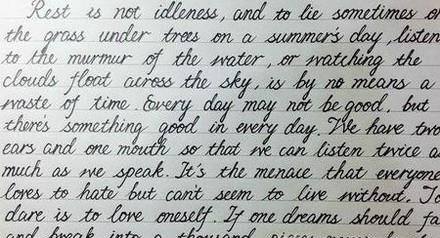 Rest is not idleness, and to lie sometimes on
the grass under trees on a summer's day, listen
to the murmur of the water, or watching the
clouds float across the sky, is by no means a
waste of time. Every day may not be good, but
there's something good in every day. We have two
ears and one mouth so that we can listen twice a
much as we speak. It's the menace that everyone
loves to hate but can't seem to live without. To
dare is to love oneself. If one dreams should fa
and break into a thousand pieces never be